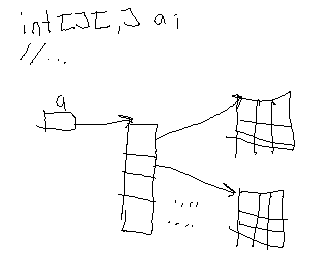 int[][,] a;
//...
a
....
....